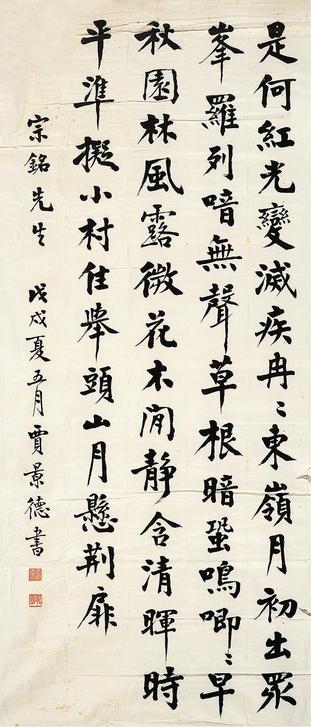 是何紅光變滅疾冉〻東嶺月初出眾
峯羅列喑無聲草根暗蛩鳴唧〻早
秋園林風露微花木閒靜含清暉時
平準擬小村住舉頭山月懸荆扉
宗銘先生 戊戌夏五月賈景德書